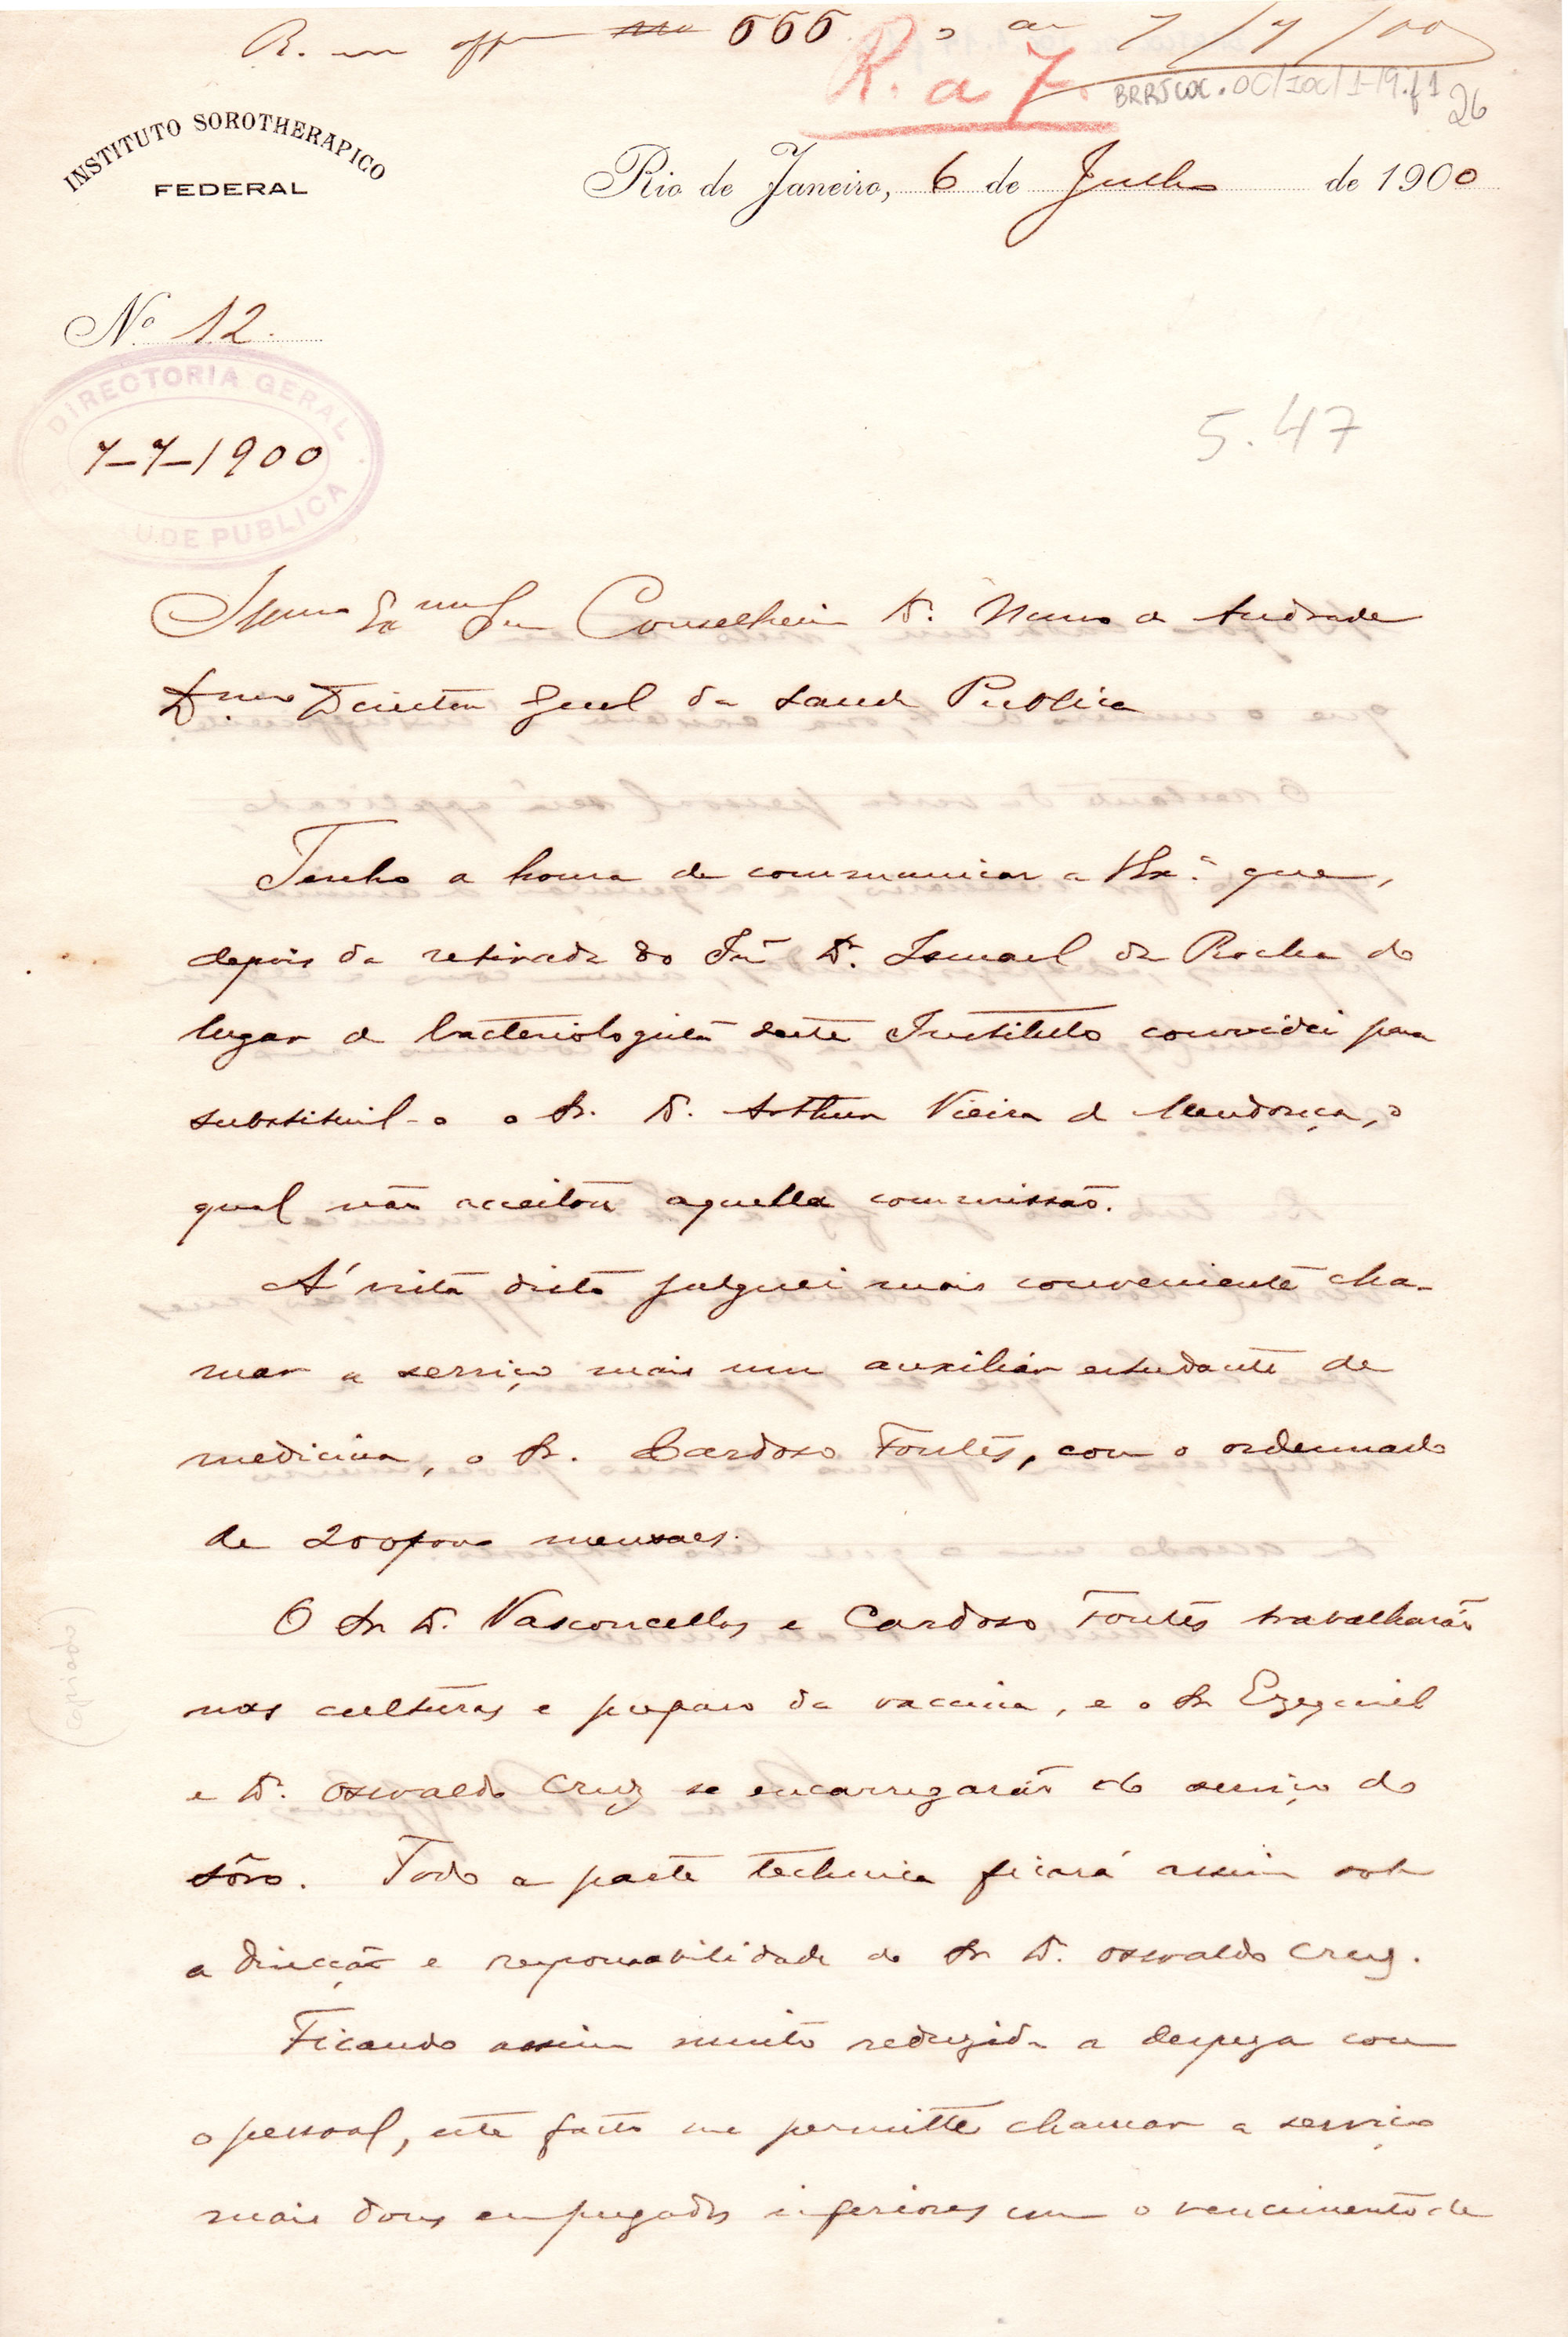 R. em off 666 de 7/7/00
R. a 7.
BRRJCOC.OC/IOC/1-19.f1
26
INSTITUTO SOROTHERAPICO
FEDERAL
Rio de Janeiro, 6 de Julho de 1900
Nº 12.
DIRECTORIA GERAL
7-7-1900
SAUDE PUBLICA
5.47
Illmo Exmo Snr Conselheiro Dr. Nuno de Andrade
Dmo Director Geral da Saude Publica
Tenho a honra de communicar a V.Exª que,
depois da retirada do Snr Dr. Ismael da Rocha do
lugar de bacteriologista deste Instituto convidei para
substituil-o o Sr. Dr. Arthur Vieira de Mendonça, o
qual não acceitou aquella commissão.
Á vista disto julguei mais conveniente cha-
mar a serviço mais um auxiliar estudante de
medicina, o Sr. Cardoso Fontes, com o ordennado
de 200$000 mensaes.
O Sr Dr. Vasconcellos e Cardoso Fontes trabalharão
nas culturas e preparo da vaccina, e o Sr Ezequiel
e Dr. Oswaldo Cruz se encarregarão do serviço do
sôro. Toda a parte technica ficará assim sob
a direcção e responsabilidade do Sr Dr. Oswaldo Cruz.
Ficando assim muito reduzida a despeza com
o pessoal, este facto me permitte chamar a serviço
mais dous empregados inferiores com o vencimento de
(copiado)